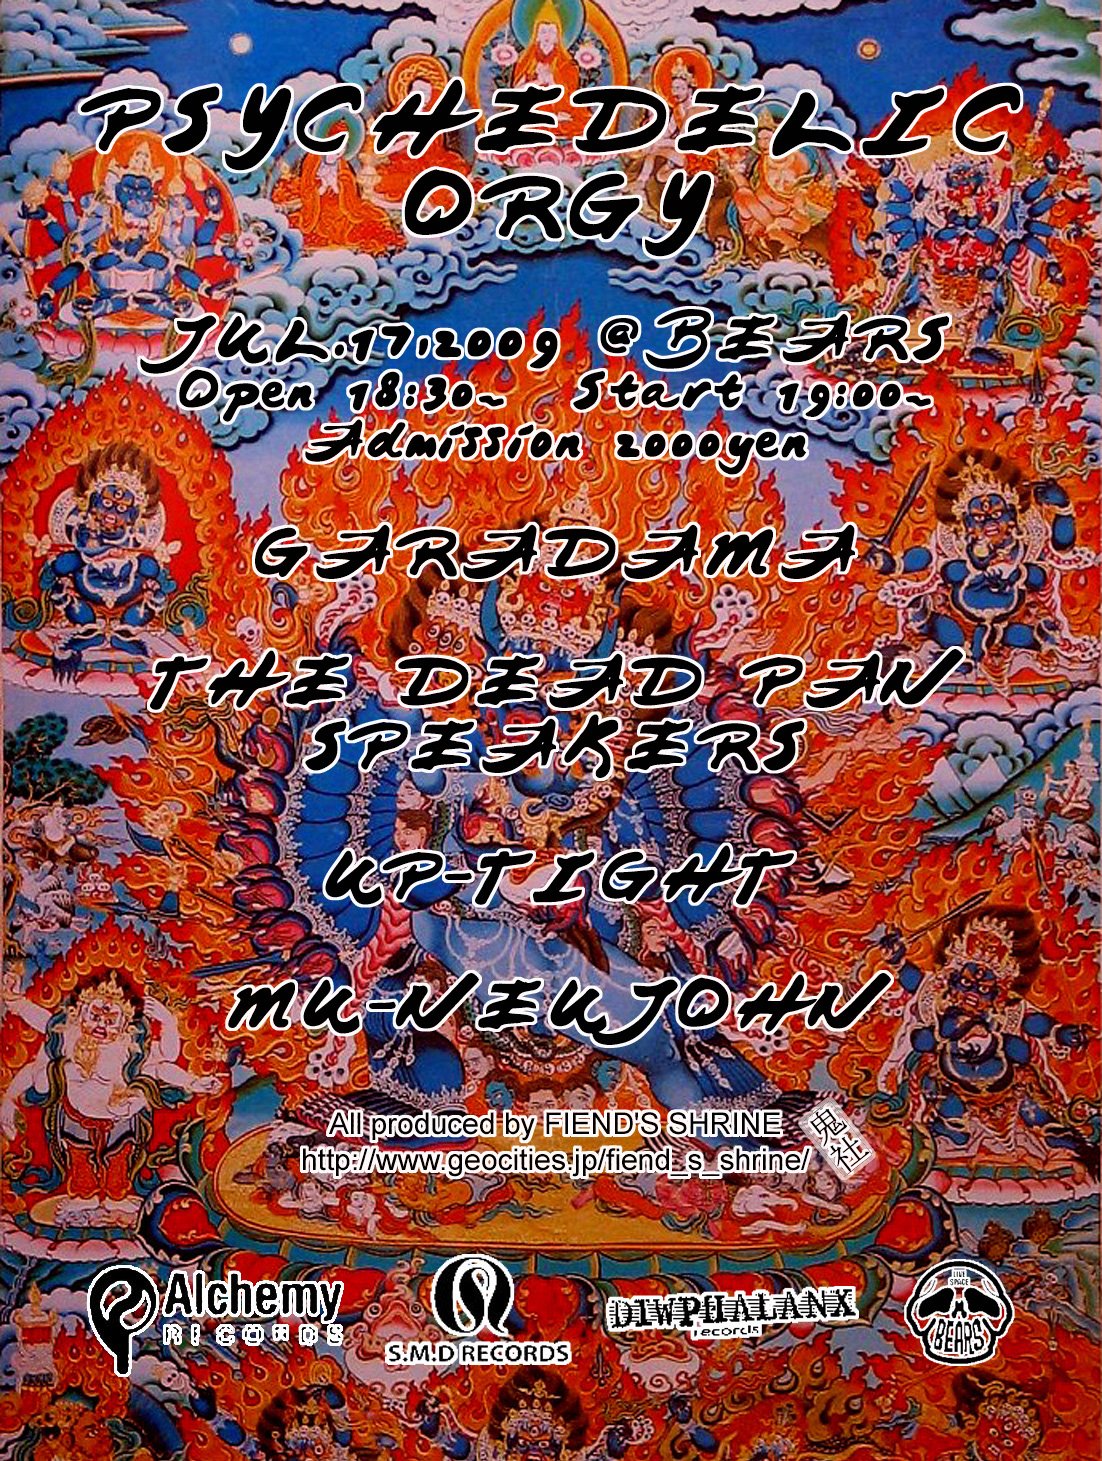 PSYCHEDELIC
ORGY
JUL.17,2009 @BEARS
Open 18:30~ Start 19:00~
Admission 2000yen
GARADAMA
THE DEAD PAN
SPEAKERS
UP-TIGHT
MU-NEUJOHN
All produced by FIEND'S SHRINE
http://www.geocities.jp/fiend_s_shrine/
鬼社
Alchemy
RECORDS
S.M.D RECORDS
DIWPHALANX
records
LIVE
SPACE
BEARS